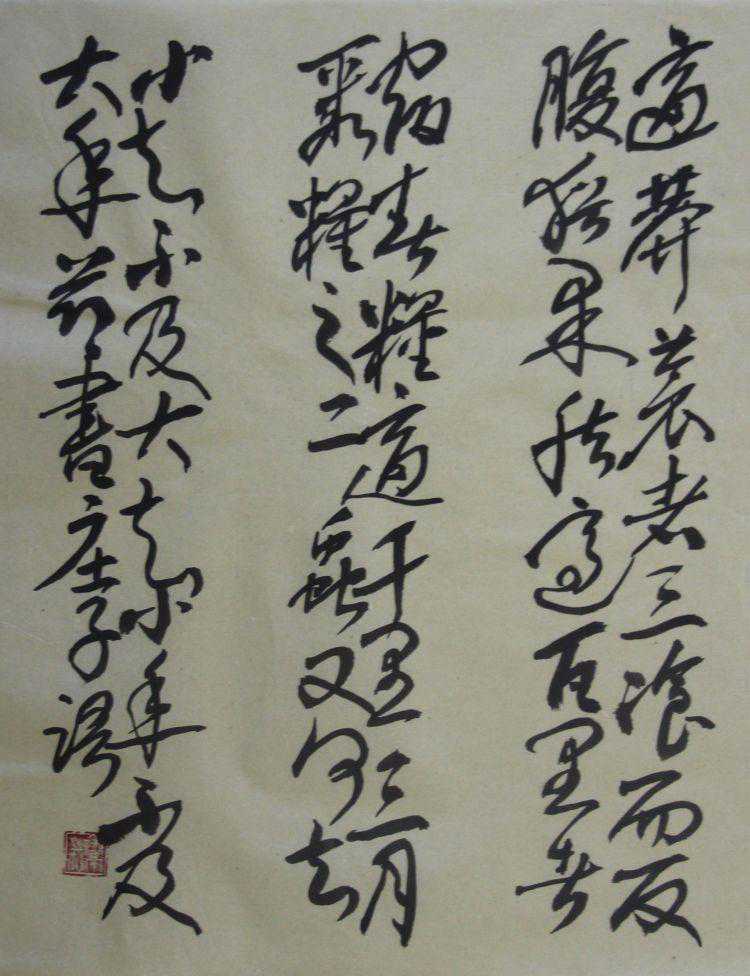 適莽蒼者三飡而反
腹猶果然適百里者
宿舂糧適千里三月
聚糧之二蟲又何知
小知不及大知小年不及
大年節書庄子